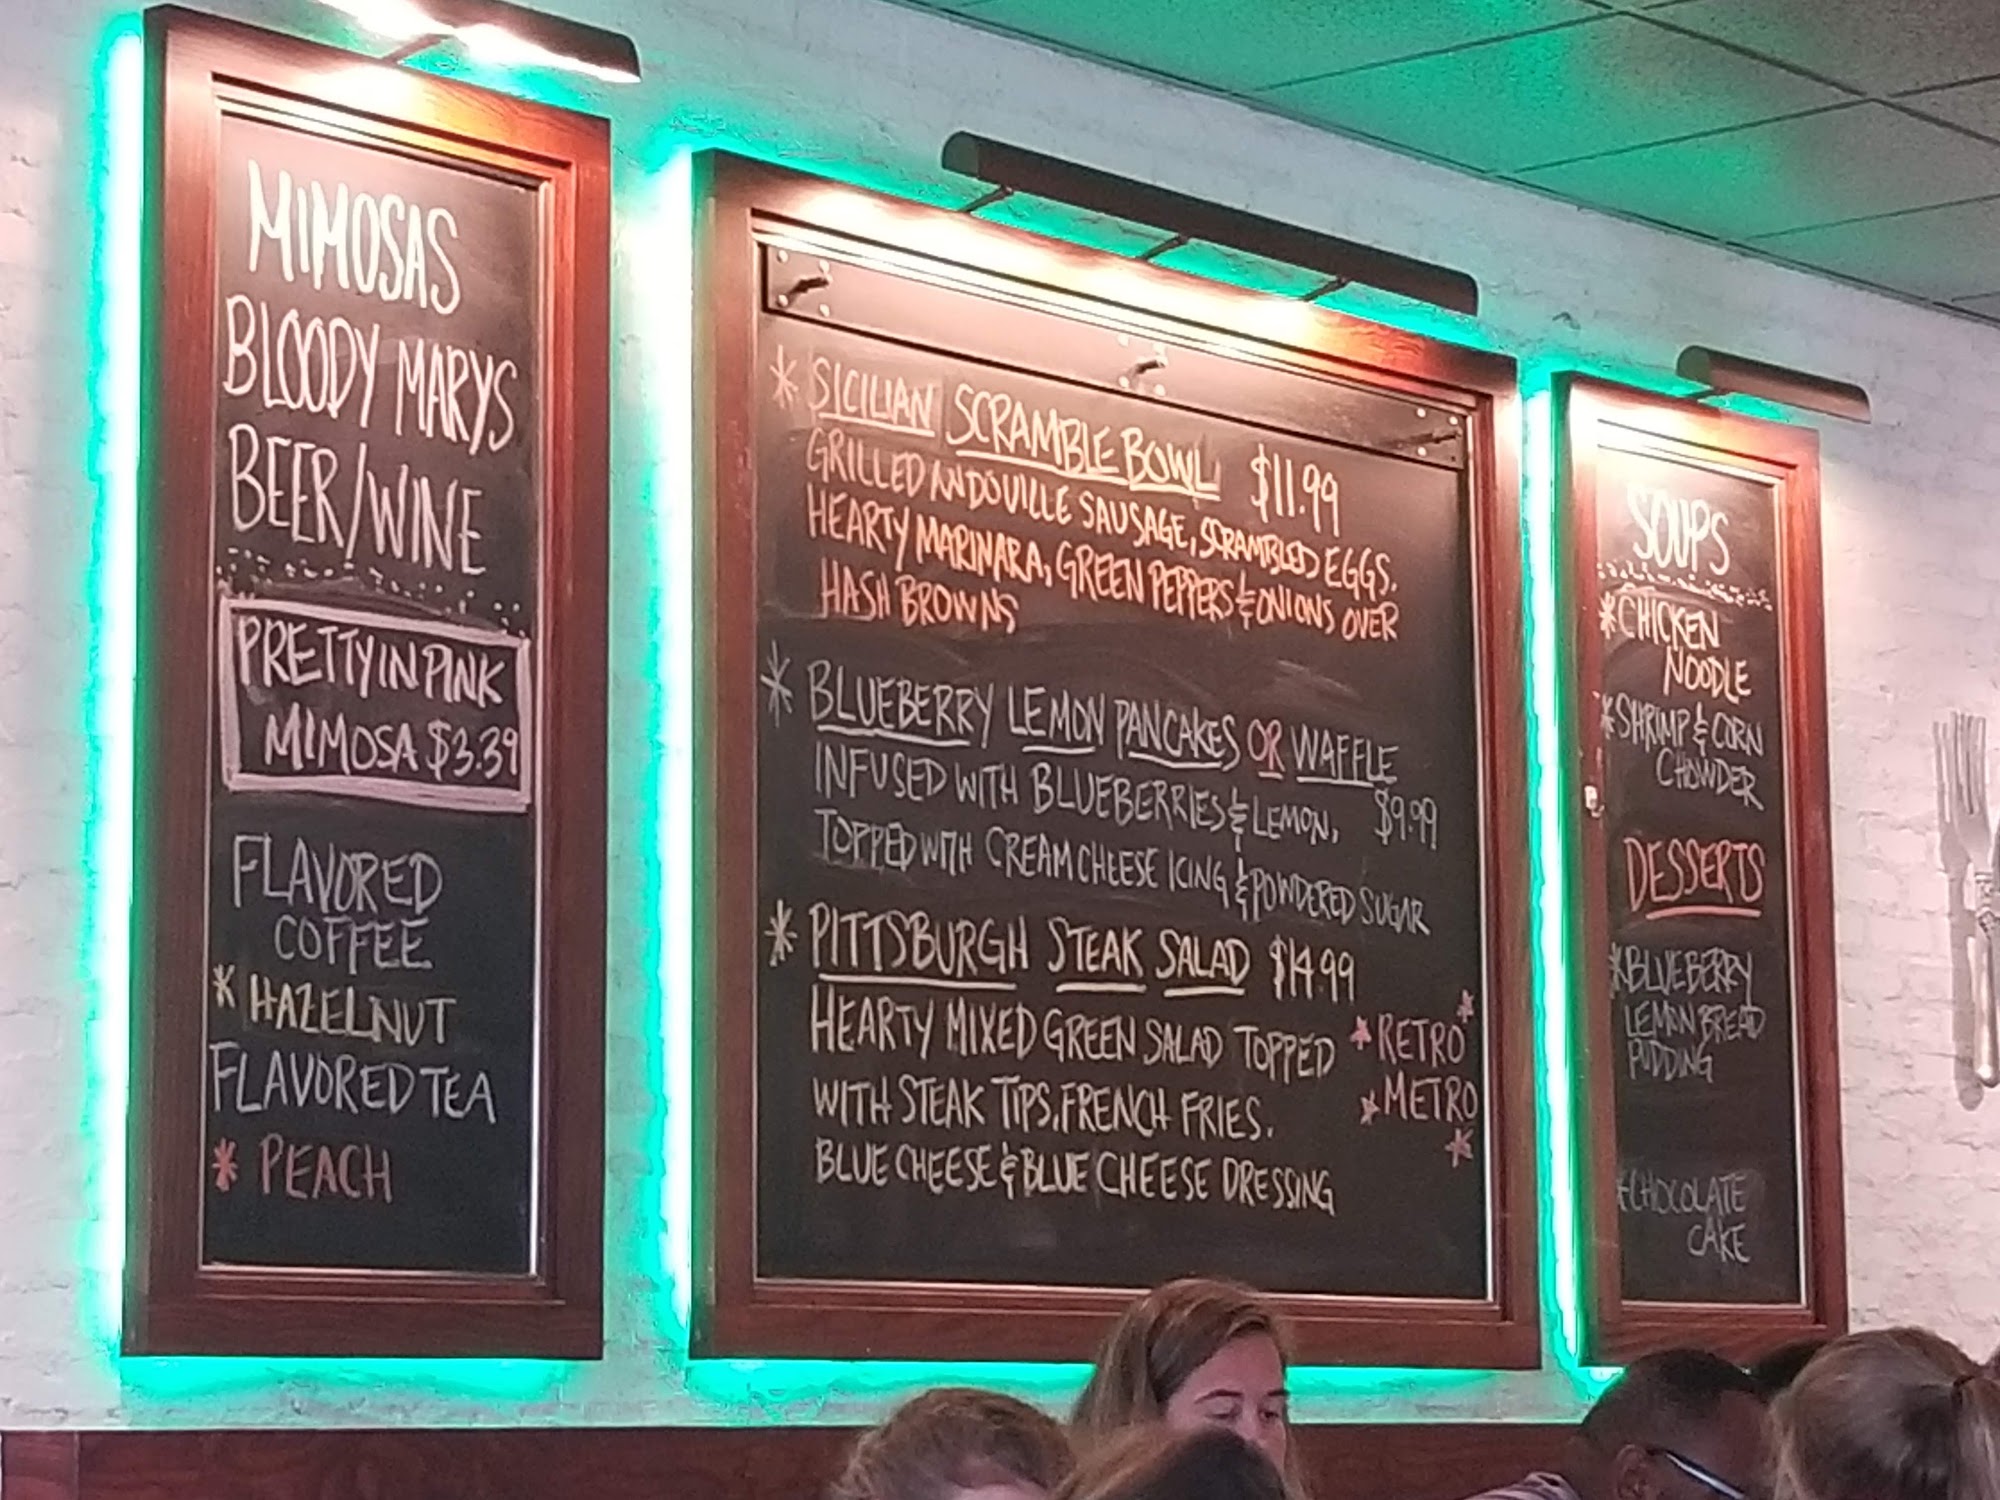 MIMOSAS
BLOODY MARYS
BEER/WINE
PRETTY IN PINK
MIMOSA $3.39
FLAVORED
COFFEE
* HAZELNUT
FLAVORED TEA
* PEACH
* SICILIAN SCRAMBLE BOWL $11.99
GRILLED ANDOUILLE SAUSAGE, SCRAMBLED EGGS,
HEARTY MARINARA, GREEN PEPPERS & ONIONS OVER
HASH BROWNS
* BLUEBERRY LEMON PANCAKES OR WAFFLE
INFUSED WITH BLUEBERRIES & LEMON, $9.99
TOPPED WITH CREAM CHEESE ICING & POWDERED SUGAR
* PITTSBURGH STEAK SALAD $14.99
HEARTY MIXED GREEN SALAD TOPPED
WITH STEAK TIPS, FRENCH FRIES,
BLUE CHEESE & BLUE CHEESE DRESSING
* RETRO *
* METRO
*
SOUPS
* CHICKEN
NOODLE
* SHRIMP & CORN
CHOWDER
DESSERTS
* BLUEBERRY
LEMON BREAD
PUDDING
* CHOCOLATE
CAKE